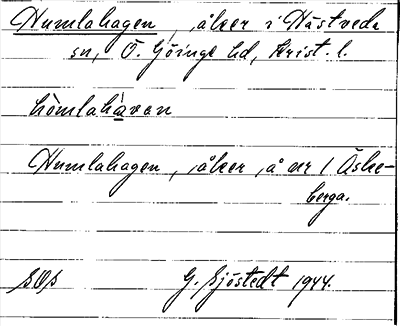 Humlahagen, åker i Hästveda
sn, Ö. Göinge hd, Krist. l.
hòmlahàvan
Humlahagen, åker, å nr 1 Äske-
berga.
G. Sjöstedt 1944.